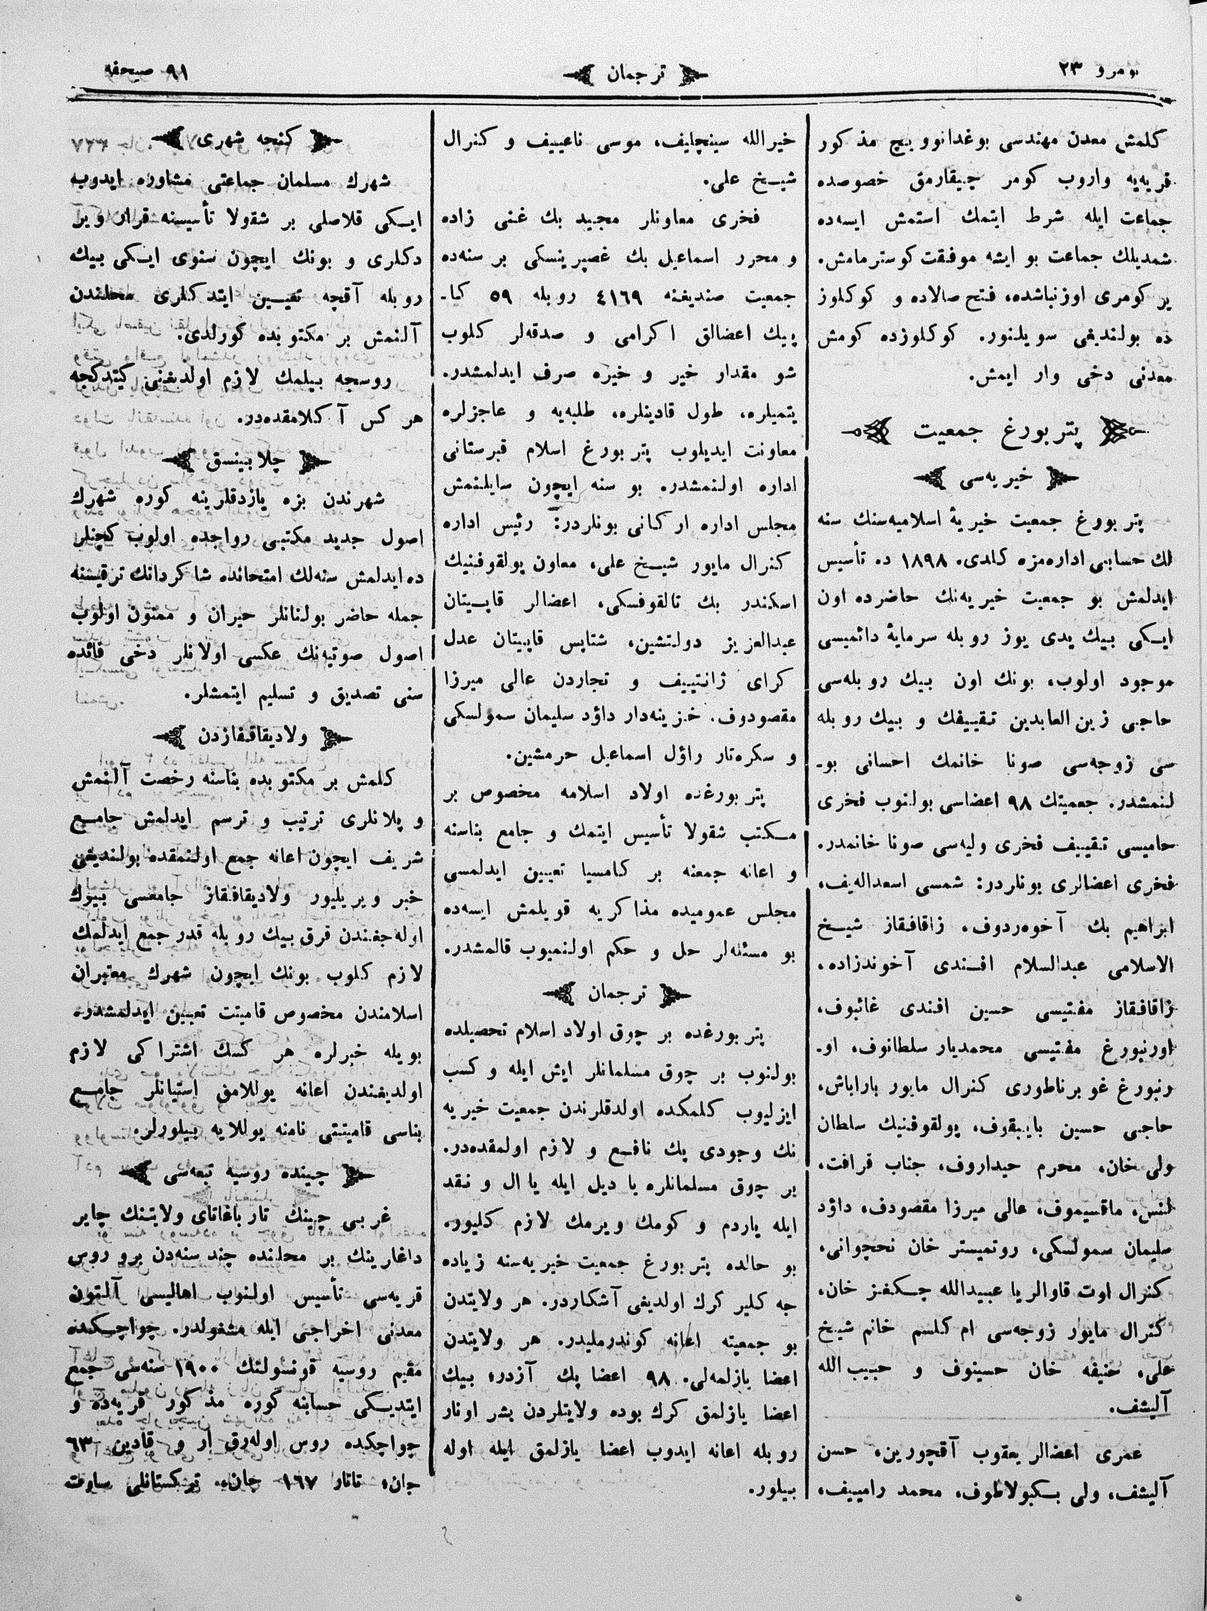 نومرو ٢٣
ترجمان
٩١ صحیفه
كلمش معدن مهندسی بوغدانوویچ مذكور
قریه‌یه واروب كومر چیقارمق خصوصده
جماعت ایله شرط ایتمك استمش ایسه‌ده
شمدیلك جماعت بو ایشه موفقت كوسترمامش.
یر كومری اوزنباشده، فتح صالاده و كوكلوز
ده بولندیغی سویلنور. كوكلوزده كومش
معدنی دخی وار ایمش.
پتربورغ جمعیت
خیریه‌سی
پتربورغ جمعیت خیریهٔ اسلامیه‌سنك سنه
لك حسابی اداره‌مزه كلدی. ١٨٩٨ ده تأسیس
ایدلمش بو جمعیت خیریه‌نك حاضرده اون
ایكی بیك یدی یوز روبله سرمایهٔ دائمیسی
موجود اولوب، بونك اون بیك روبله‌سی
حاجی زین العابدین تقییفك و بیك روبله
سی زوجه‌سی صونا خانمك احسانی بو۔
لنمشدر. جمعیتك ٩٨ اعضاسی بولنوب فخری
حامیسی تقییف فخری ولیه‌سی صونا خانمدر.
فخری اعضالری بونلردر: شمسی اسعدالله‌یف،
ابراهیم بك آخوه‌ردوف، زاقافقاز شیخ
الاسلامی عبدالسلام افندی آخوندزاده،
زاقافقاز مفتیسی حسین افندی غائبوف،
اورنبورغ مفتیسی محمدیار سلطانوف، او۔
رنبورغ غوبرناطوری كنرال مایور باراباش،
حاجی حسین بایبقوف، پولقوفنیك سلطان
ولی خان، محرم حیداروف، جناب قرافت،
لنس، ماقسیموف، عالی میرزا مقصودوف، داؤد
سلیمان سمولسكی، روتمیستر خان نخچوانی،
كنرال اوت قاوالریا عبیدالله چنكفز خان،
كنرال مایور زوجه‌سی ام كلسم خانم شیخ
علی، حنیفه خان حسینوف و حبیب الله
آلیشف.
عمری اعضالر یعقوب آقچورین، حسن
آلیشف، ولی بكبولاطوف، محمد رامییف،
خیرالله سینچلیف، موسی ناعییف و كنرال
شیخ علی.
فخری معاونلر مجید بك غنی زاده
و محرر اسماعیل بك غصپرینسكی بر سنه‌ده
جمعیت صندیغنه ٤١٦٩ روبله ٥٩ كا۔
پیك اعضالق اكرامی و صدقه‌لر كلوب
شو مقدار خیر و خیره صرف ایدلمشدر.
یتمیلره، طول قادینلره، طلبه‌یه و عاجزلره
معاونت ایدیلوب پتربورغ اسلام قبرستانی
اداره اولنمشدر. بو سنه ایچون سایلنمش
مجلس اداره اركانی بونلردر: رئیس اداره
كنرال مایور شیخ علی، معاون پولقوفنیك
اسكندر بك تالقوفسكی، اعضالر قاپیتان
عبدالعزیز دولتشین، شتابس قاپیتان عدل
كرای ژانتییف و تجاردن عالی میرزا
مقصودوف. خزینه‌دار داؤد سلیمان سمولسكی
و سكره‌تار راؤل اسماعیل حرمشین.
پتربورغده اولاد اسلامه مخصوص بر
مكتب شقولا تأسیس ایتمك و جامع بناسنه
و اعانه جمعنه بر كامسیا تعیین ایدلمسی
مجلس عمومیده مذاكریه قویلمش ایسه‌ده
بو مسئله‌لر حل و حكم اولنمیوب قالمشدر.
ترجمان
پتربورغده بر چوق اولاد اسلام تحصیلده
بولنوب بر چوق مسلمانلر ایش ایله و كسب
ایزلیوب كلمكده اولدقلرندن جمعیت خیریه
نك وجودی پك نافع و لازم اولمقده‌در.
بر چوق مسلمانلره یا دیل ایله یا ال و نقد
ایله یاردم و كومك ویرمك لازم كلیور،
بو حالده پتربورغ جمعیت خیریه‌سنه زیاده
جه كلیر كرك اولدیغی آشكاردر. هر ولایتدن
بو جمعیته اعانه كوندرملیدر. هر ولایتدن
اعضا یازلمه‌لی. ٩٨ اعضا پك آزدر، بیك
اعضا یازلمق كرك بوده ولایتلردن بشر اونار
روبله اعانه ایدوب اعضا یازلمق ایله اوله
بیلور.
كنجه شهری
شهرك مسلمان جماعتی مشاوره ایدوب
ایكی قلاصلی بر شقولا تأسیسنه قرار ویر
دكلری و بونك ایچون سنوی ایكی بیك
روبله آقچه تعیین ایتدكلری محلندن
آلنمش بر مكتوبده كورلدی.
روسجه بیلمك لازم اولدیغنی كیتدكجه
هر كس آكلامقده‌در.
چلابینسق
شهرندن بزه یازدقلرینه كوره شهرك
اصول جدید مكتبی رواجده اولوب كچنلر
ده ایدلمش سنه‌لك امتحانده شاكردانك ترقیسنه
جمله حاضر بولنانلر حیران و ممنون اولوب
اصول صوتیه‌نك عكسی اولانلر دخی فائده
سنی تصدیق و تسلیم ایتمشلر.
ولادیقافقازدن
كلمش بر مكتوبده بناسنه رخصت آلنمش
و پلانلری ترتیب و ترسم ایدلمش جامع
شریف ایچون اعانه جمع اولنمقده بولندیغی
خبر ویریلیور ولادیقافقاز جامعسی بیوك
اوله‌جغندن قرق بیك روبله قدر جمع ایدلمك
لازم كلوب بونك ایچون شهرك معتبران
اسلامندن مخصوص قامیتت تعیین ایدلمشدر.
بویله خبرلره هر كسك اشتراكی لازم
اولدیغندن اعانه یوللامق استیانلر جامع
بناسی قامیتتی نامنه یوللایه بیلورلر.
چینده روسیه تبعه‌سی
غربی چینك تارباغاتای ولایتنك چایر
داغارینك بر محلنده چند سنه‌دن برو روس
قریه‌سی تأسیس اولنوب اهالیسی آلتون
معدنی اخراجی ایله مشغولدر. چواچكده
مقیم روسیه قونسولنك ١٩٠٠ سنه‌سی جمع
ایتدیكی حسابنه كوره مذكور قریه‌ده و
چواچكده روس اوله‌رق ار و قادین ٦٣
جان، تاتار ١٦٧ جان، تركستانلی سارت